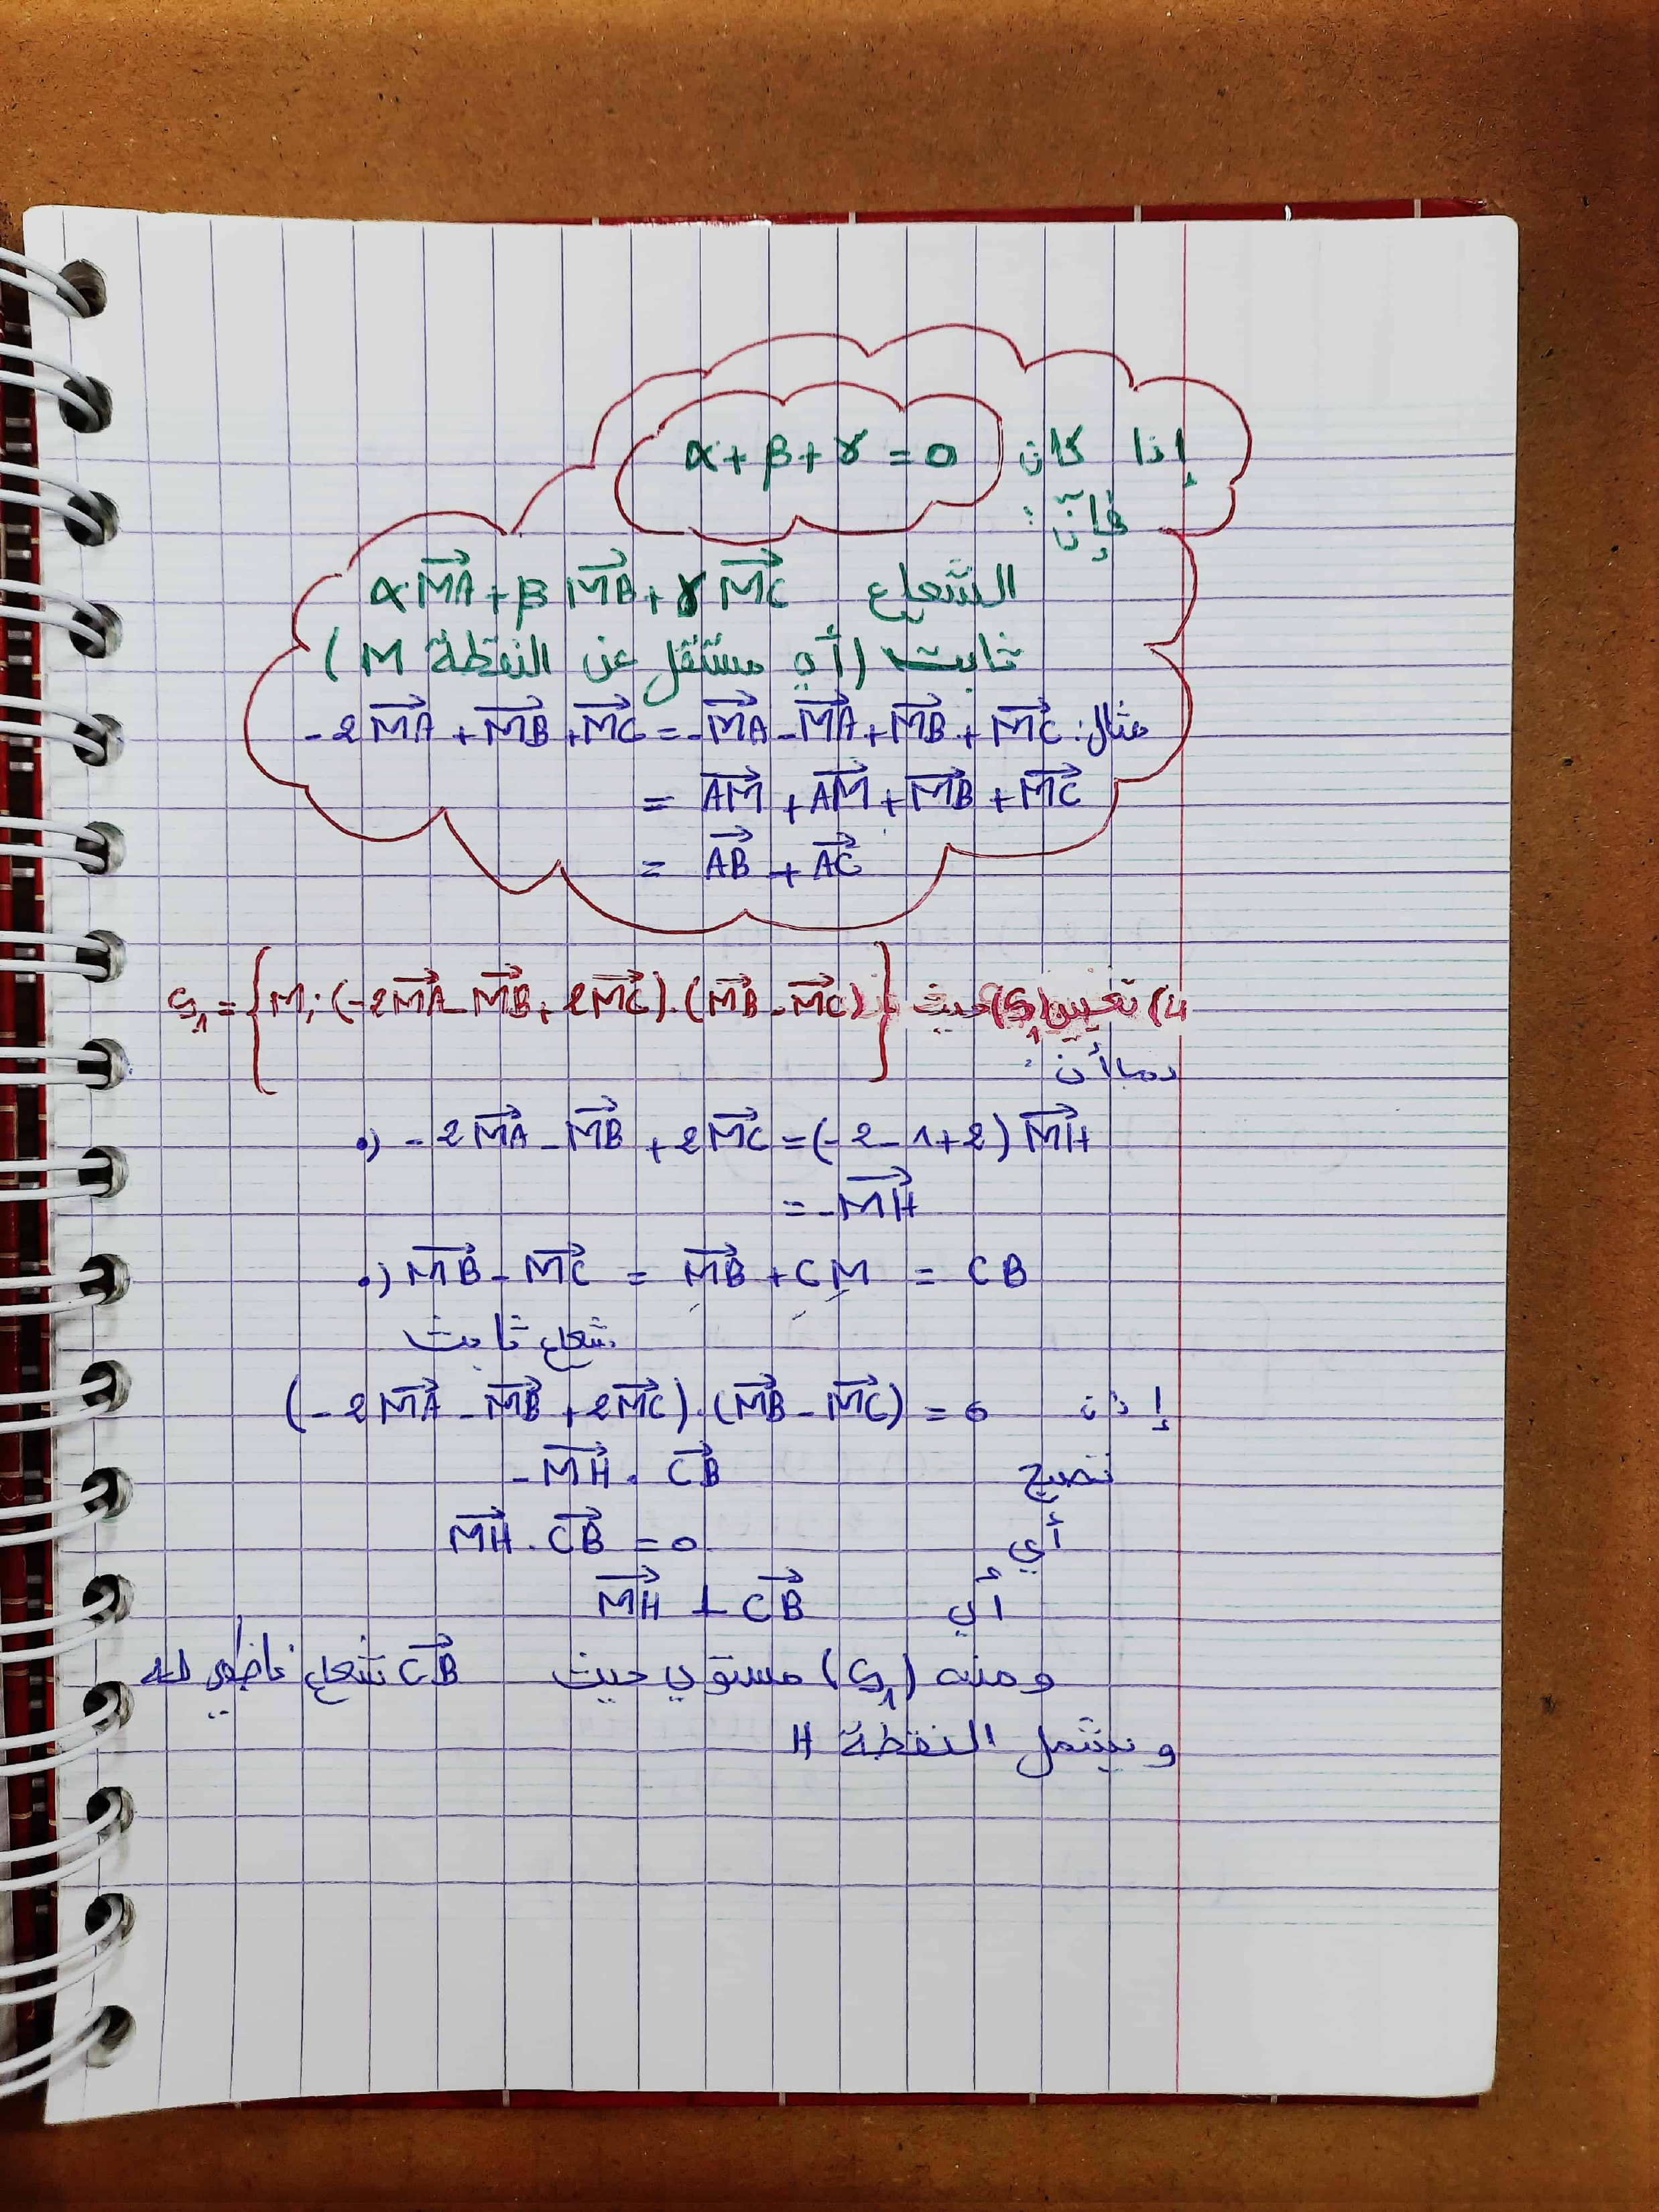 إذا كان α + β + γ = 0
فإنّ :
الشعاع α\overrightarrow{MA} + β\overrightarrow{MB} + γ\overrightarrow{MC}
ثابت (أي مستقل عن النقطة M)
مثال: -2\overrightarrow{MA} + \overrightarrow{MB} + \overrightarrow{MC} = -\overrightarrow{MA} - \overrightarrow{MA} + \overrightarrow{MB} + \overrightarrow{MC}
= \overrightarrow{AM} + \overrightarrow{AM} + \overrightarrow{MB} + \overrightarrow{MC}
= \overrightarrow{AB} + \overrightarrow{AC}
4) تعيين (S₁) حيث S₁ = {M; (-2\overrightarrow{MA} - \overrightarrow{MB} + 2\overrightarrow{MC}).(\overrightarrow{MB} - \overrightarrow{MC})}
بما أن :
•) -2\overrightarrow{MA} - \overrightarrow{MB} + 2\overrightarrow{MC} = (-2-1+2)\overrightarrow{MH}
= -\overrightarrow{MH}
•) \overrightarrow{MB} - \overrightarrow{MC} = \overrightarrow{MB} + CM = CB
شعاع ثابت
إذن (-2\overrightarrow{MA} - \overrightarrow{MB} + 2\overrightarrow{MC}).(\overrightarrow{MB} - \overrightarrow{MC}) = 0
تصبح -\overrightarrow{MH} . \overrightarrow{CB}
أي \overrightarrow{MH} . \overrightarrow{CB} = 0
أي \overrightarrow{MH} ⊥ \overrightarrow{CB}
ومنه (S₁) مستوي حيث \overrightarrow{CB} شعاع ناظمي له
ويشمل النقطة H